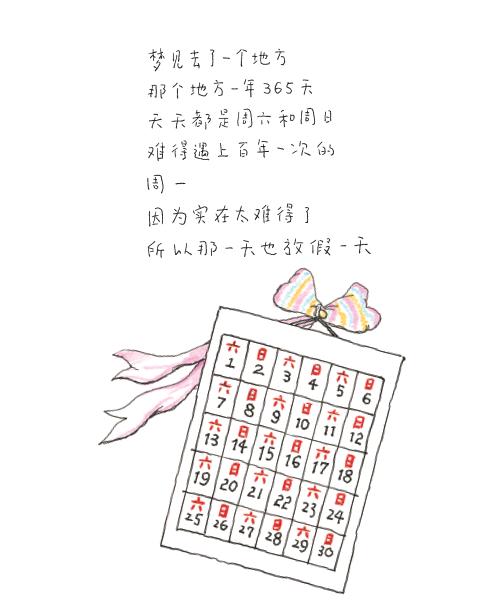 梦见去了一个地方
那个地方一年365天
天天都是周六和周日
难得遇上百年一次的
周一
因为实在太难得了
所以那一天也放假一天
六 日 六 日 六 日
1 2 3 4 5 6
六 日 六 日 六 日
7 8 9 10 11 12
六 日 六 日 六 日
13 14 15 16 17 18
六 日 六 日 六 日
19 20 21 22 23 24
六 日 六 日 六 日
25 26 27 28 29 30